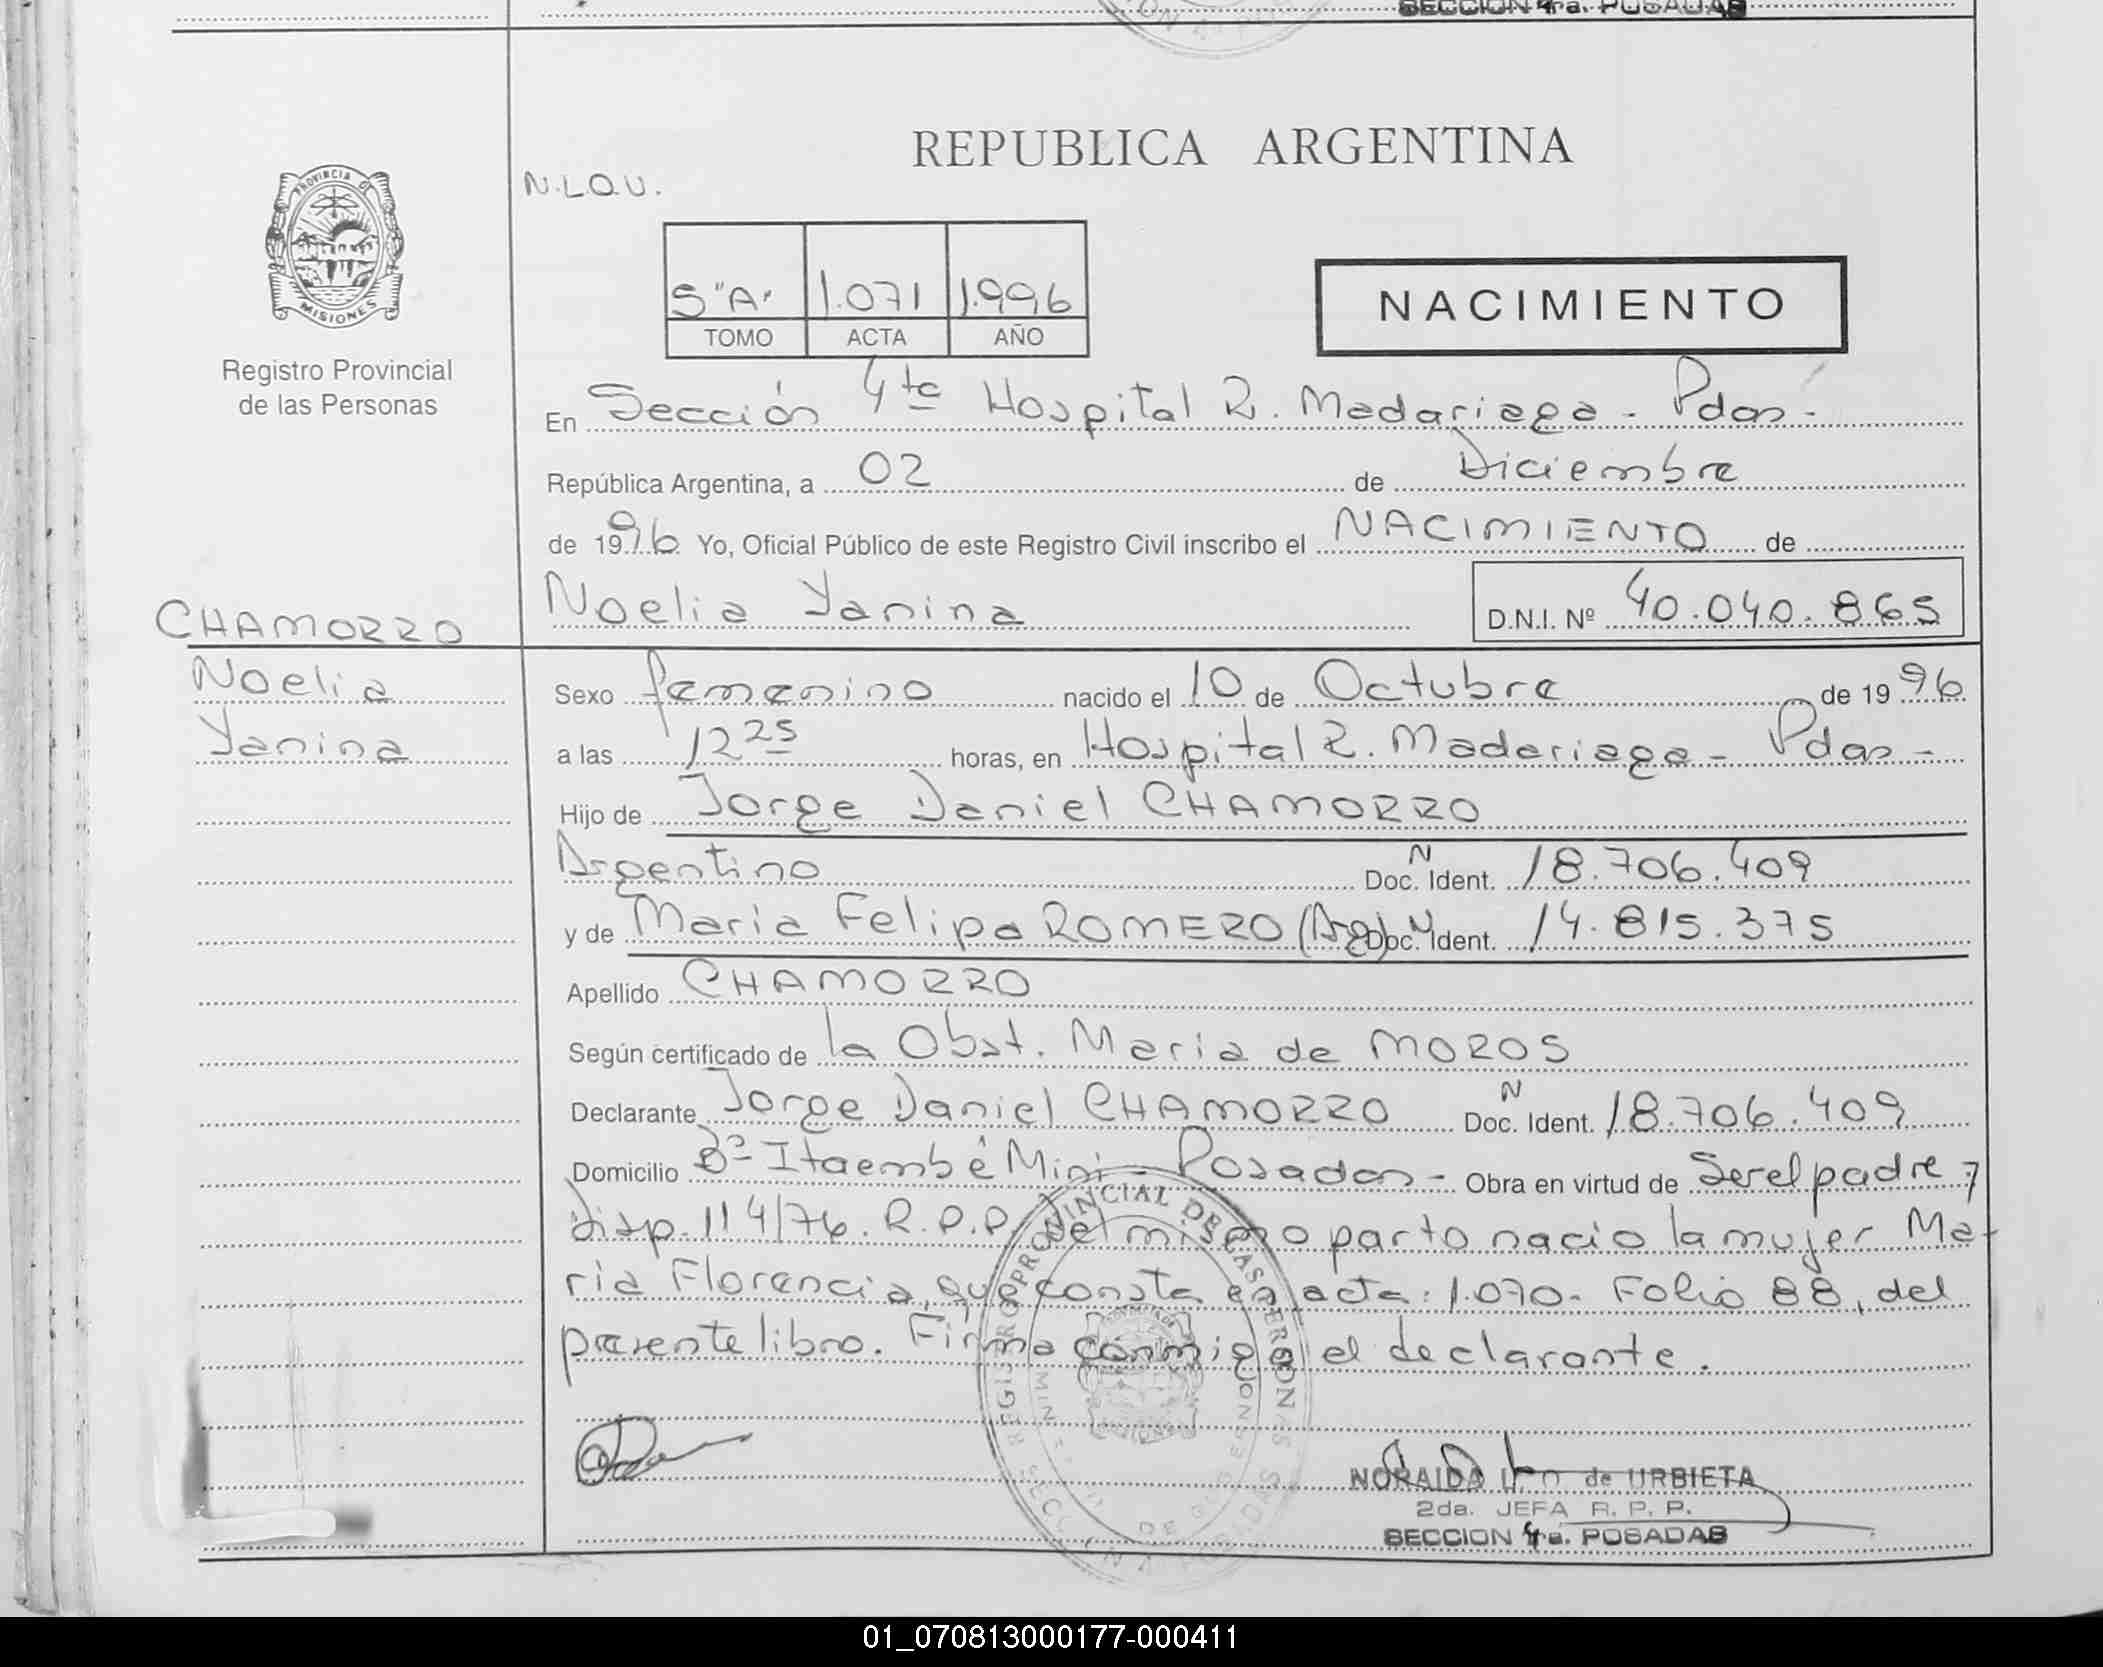 SECCION 4ta. POSADAS
REPUBLICA ARGENTINA
PROVINCIA DE
MISIONES
Registro Provincial
de las Personas
N.L.O.U.
5"A" 1.071 1.996
TOMO ACTA AÑO
NACIMIENTO
En Sección 4ta Hospital R. Madariaga - Pdas -
República Argentina, a 02 de Diciembre
de 1996 Yo, Oficial Público de este Registro Civil inscribo el NACIMIENTO de
Noelia Yanina D.N.I. Nº 40.040.865
CHAMORRO
Noelia
Yanina
Sexo femenino nacido el 10 de Octubre de 1996
a las 12 25 horas, en Hospital R. Madariaga - Pdas -
Hijo de Jorge Daniel CHAMORRO
Argentino Doc. N Ident. 18.706.409
y de Maria Felipa ROMERO (Arg) Doc. N Ident. 14.815.375
Apellido CHAMORRO
Según certificado de la Obst. Maria de MOROS
Declarante Jorge Daniel CHAMORRO Doc. N Ident. 18.706.409
Domicilio Bº Itaembé Mini - Posadas - Obra en virtud de Ser el padre y
Disp. 114/76. R.P.P. Del mismo parto nacio la mujer Ma-
ria Florencia, que consta en acta: 1.070- Folio 88, del
presente libro. Firma conmigo el declarante.
REGISTRO PROVINCIAL DE LAS PERSONAS
SECCION 4ª POSADAS
NORAIDA de URBIETA
2da. JEFA R. P. P.
SECCION 4ta. POSADAS
01_070813000177-000411